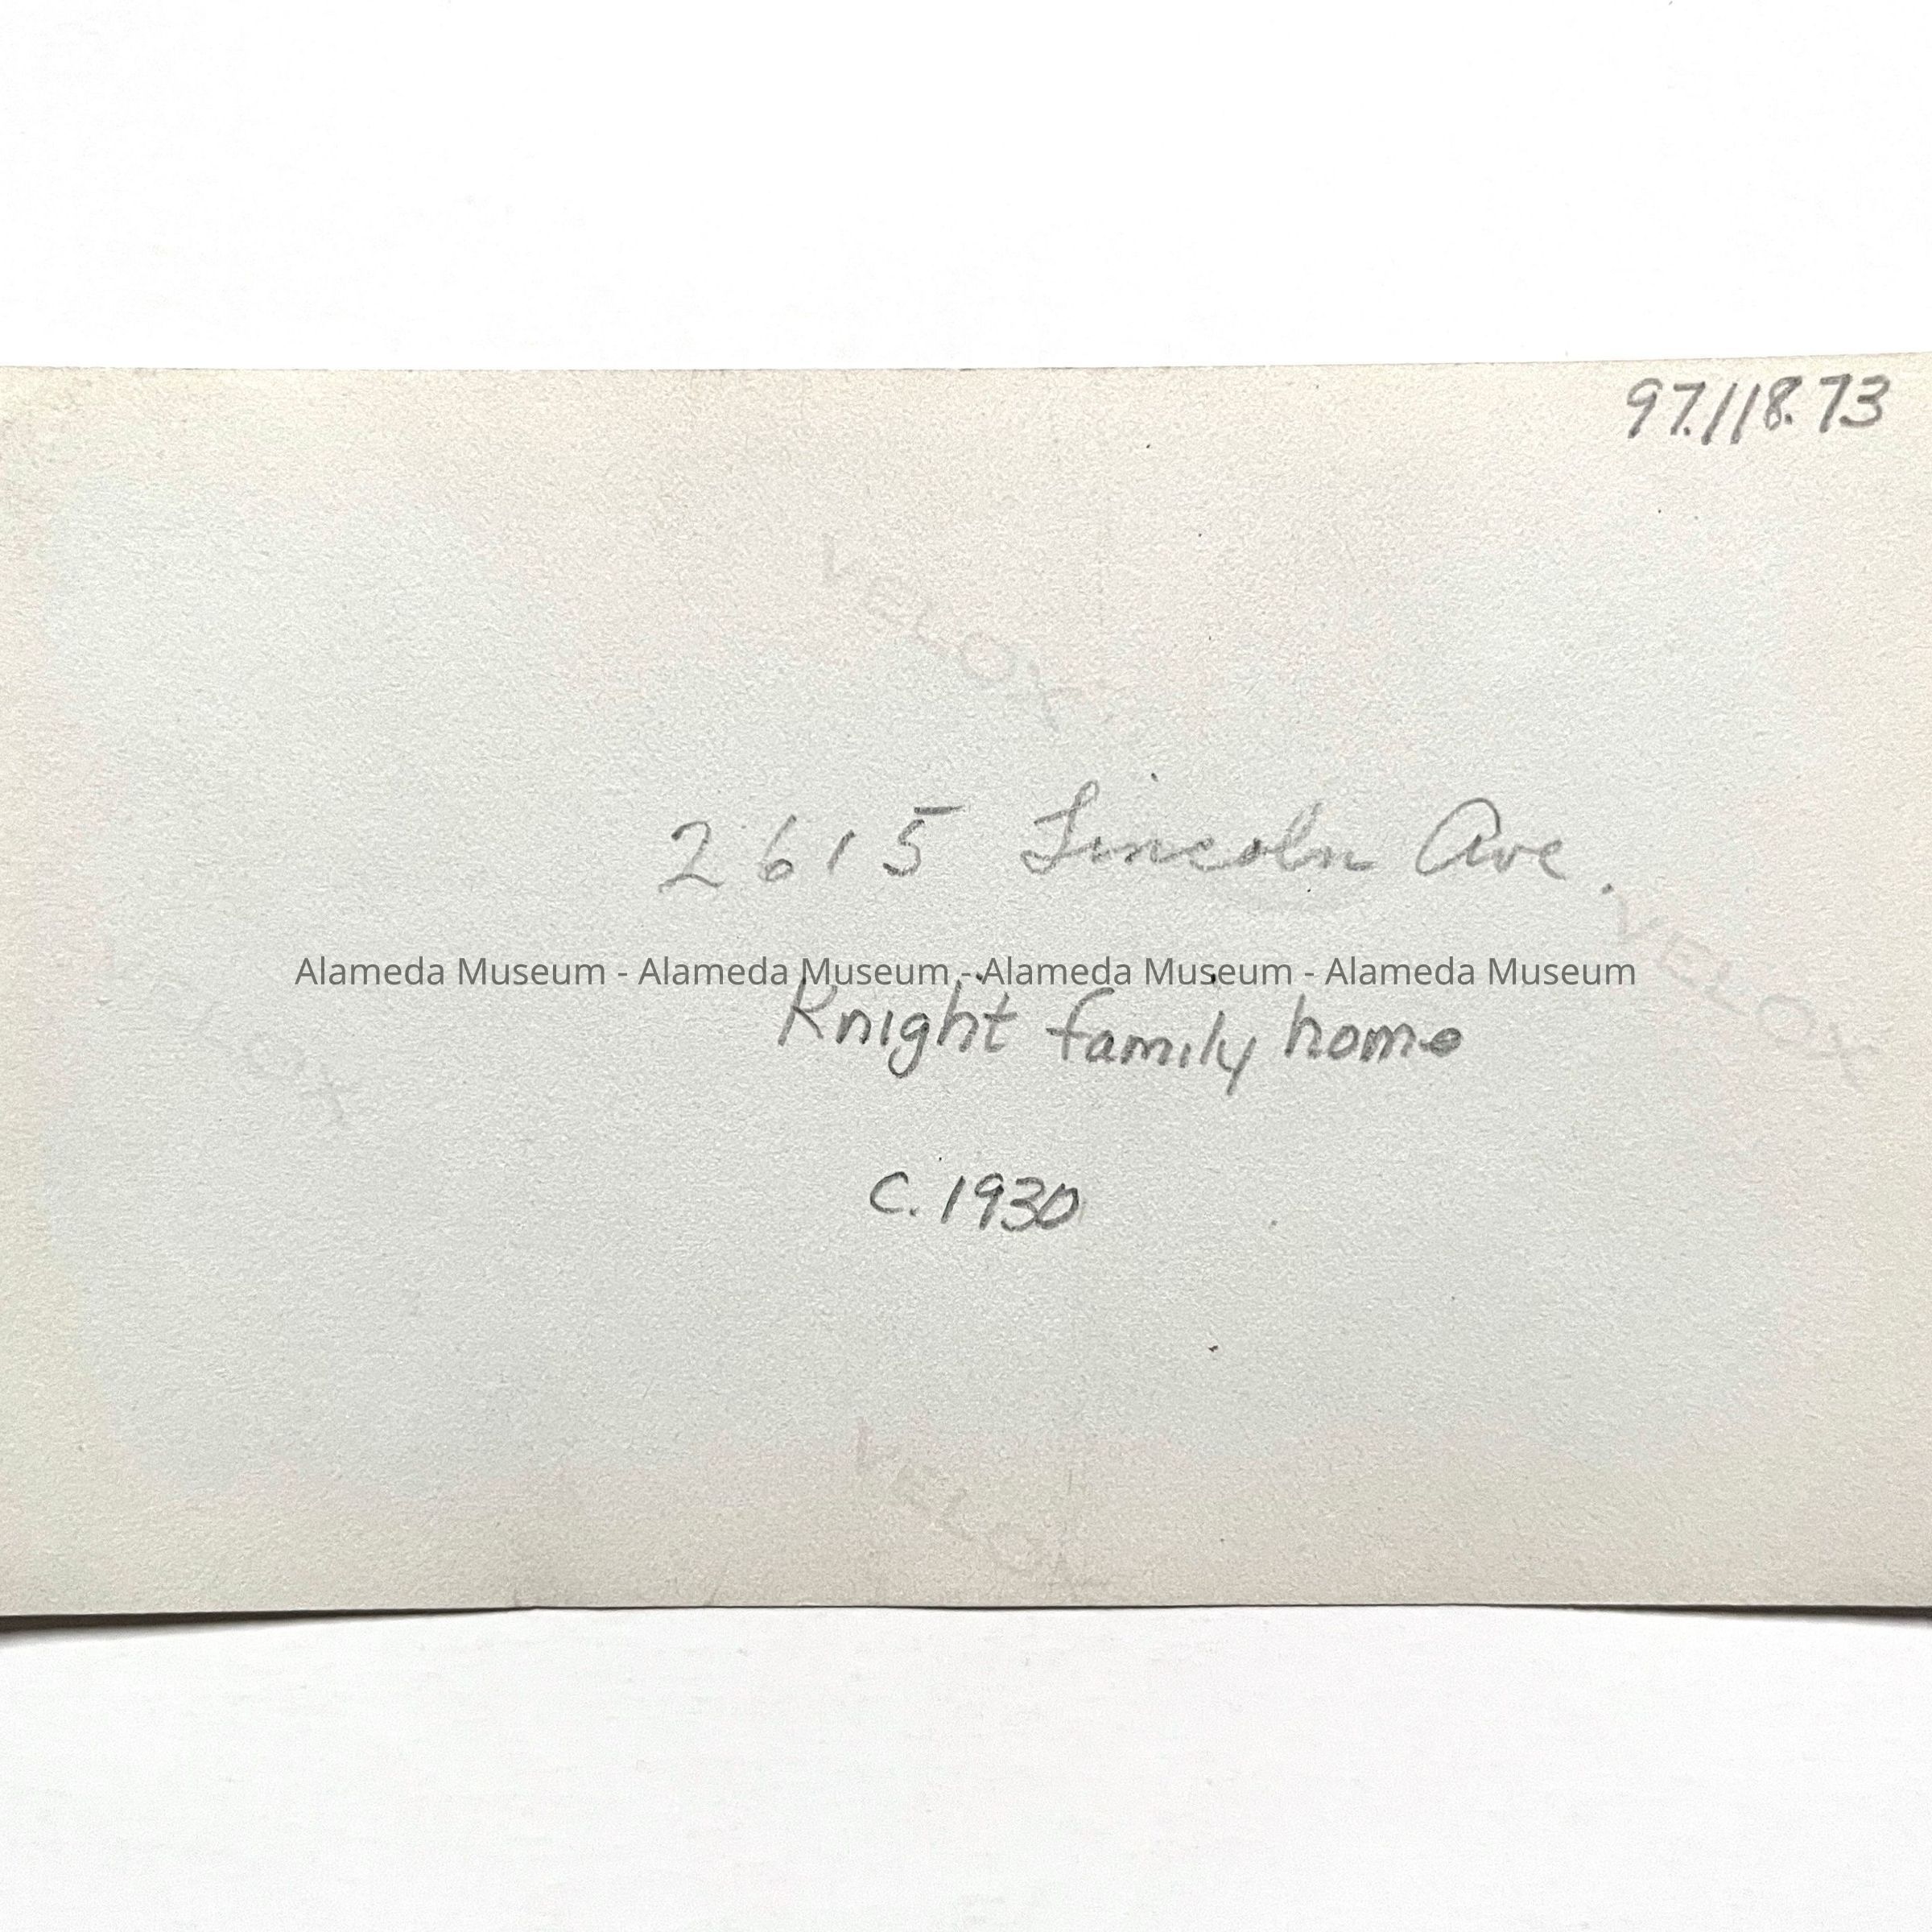 97.118.73
VELOX
2615 Lincoln Ave.
VELOX
Alameda Museum - Alameda Museum - Alameda Museum - Alameda Museum
Knight family home
VELOX
c. 1930
VELOX